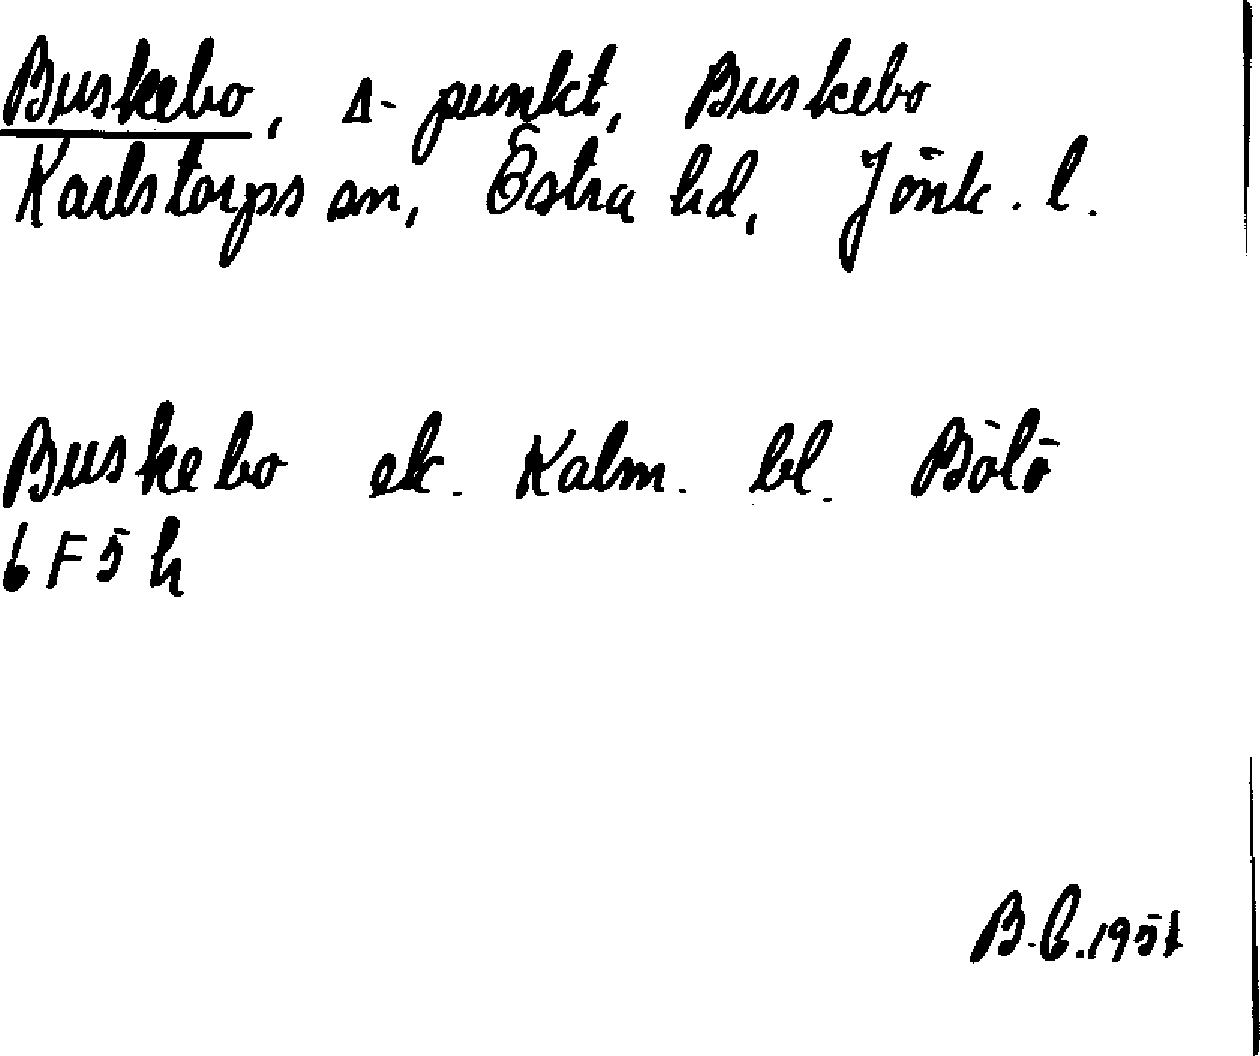 Buskebo, Δ-punkt, Buskebo
Karlstorps sn, Östra hd, Jönk. l.
Buskebo ek. Kalm. bl. Bölö
6F5h
B.C. 1951